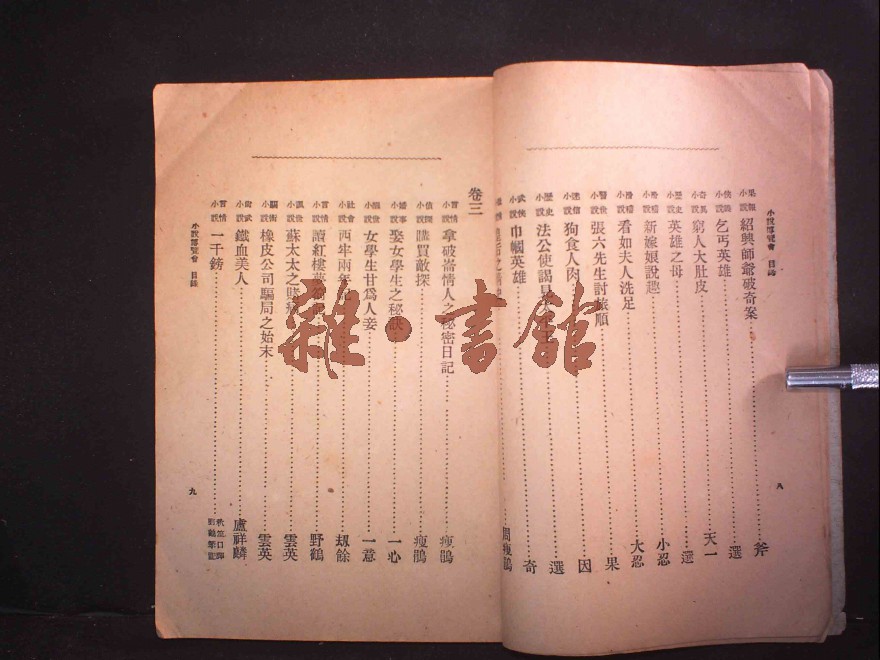 小說博覽會 目錄
果報小說 紹興師爺破奇案 斧
小說 乞丐英雄 選
小說 窮人大肚皮 天一
歷史小說 英雄之母 選
滑稽小說 新嫁娘說趣 小忍
滑稽小說 看如夫人洗足 大忍
警世小說 張六先生討旅順 果
迷信小說 狗食人肉 因
歷史小說 法公使謁見 選
武俠小說 巾幗英雄 奇
周瘦鵑
八
卷三
言情小說 拿破崙情人之秘密日記 瘦鵑
偵探小說 購買敵探 瘦鵑
婚事小說 娶女學生之秘訣 一心
醒世小說 女學生甘爲人妾 一意
社會小說 西牢兩年記 劫餘
言情小說 讀紅樓夢 野鶴
諷世小說 蘇太太之賭 雲英
騙術小說 橡皮公司騙局之始末 雲英
尚武小說 鐵血美人 盧祥麟
言情小說 一千鎊
小說博覽會 目錄
九
雜·書館